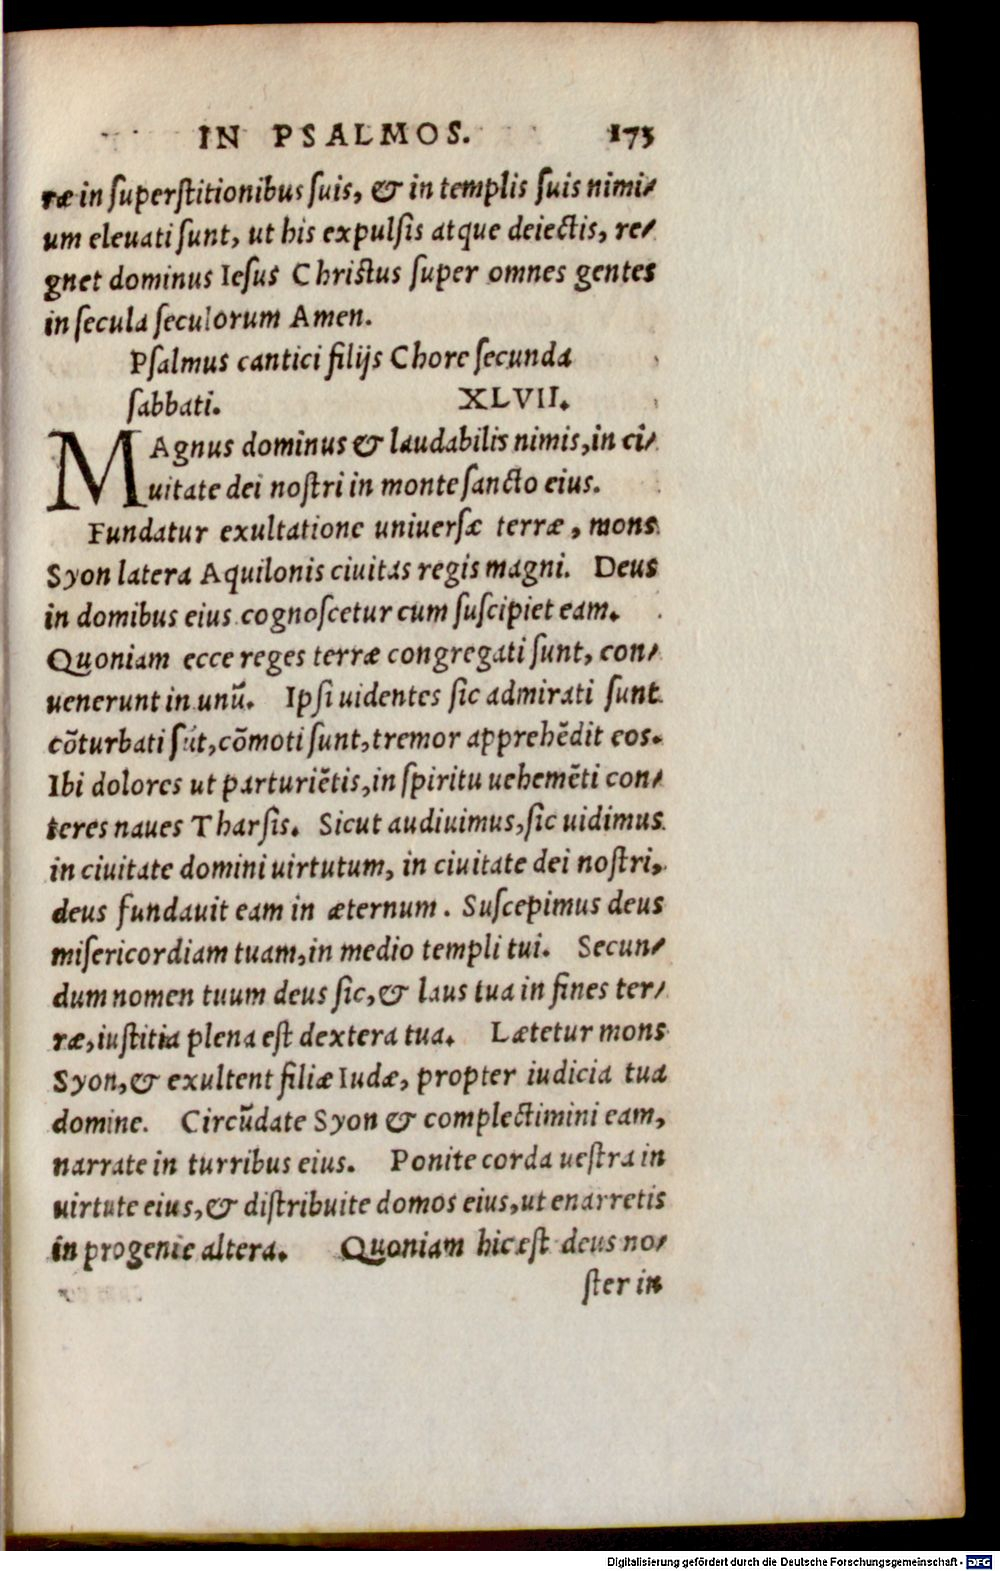 IN PSALMOS. 175
ræ in ſuperſtitionibus ſuis, & in templis ſuis nimi⸗
um eleuati ſunt, ut his expulſis atque deiectis, re⸗
gnet dominus Ieſus Chriſtus ſuper omnes gentes
in ſecula ſeculorum Amen.
Pſalmus cantici filijs Chore ſecunda
ſabbati. XLVII.
MAgnus dominus & laudabilis nimis, in ci⸗
uitate dei noſtri in monte ſancto eius.
Fundatur exultatione uniuerſæ terræ, mons
Syon latera Aquilonis ciuitas regis magni. Deus
in domibus eius cognoſcetur cum ſuſcipiet eam.
Quoniam ecce reges terræ congregati ſunt, con⸗
uenerunt in unũ. Ipſi uidentes ſic admirati ſunt
cõturbati ſũt, cõmoti ſunt, tremor apprehẽdit eos.
Ibi dolores ut parturiẽtis, in ſpiritu uehemẽti con⸗
teres naues Tharſis. Sicut audiuimus, ſic uidimus
in ciuitate domini uirtutum, in ciuitate dei noſtri,
deus fundauit eam in æternum. Suſcepimus deus
miſericordiam tuam, in medio templi tui. Secun⸗
dum nomen tuum deus ſic, & laus tua in fines ter⸗
ræ, iuſtitia plena eſt dextera tua. Lætetur mons
Syon, & exultent filiæ Iudæ, propter iudicia tua
domine. Circũdate Syon & complectimini eam,
narrate in turribus eius. Ponite corda ueſtra in
uirtute eius, & diſtribuite domos eius, ut enarretis
in progenie altera. Quoniam hic eſt deus no⸗
ſter in
Digitalisierung gefördert durch die Deutsche Forschungsgemeinschaft - DFG